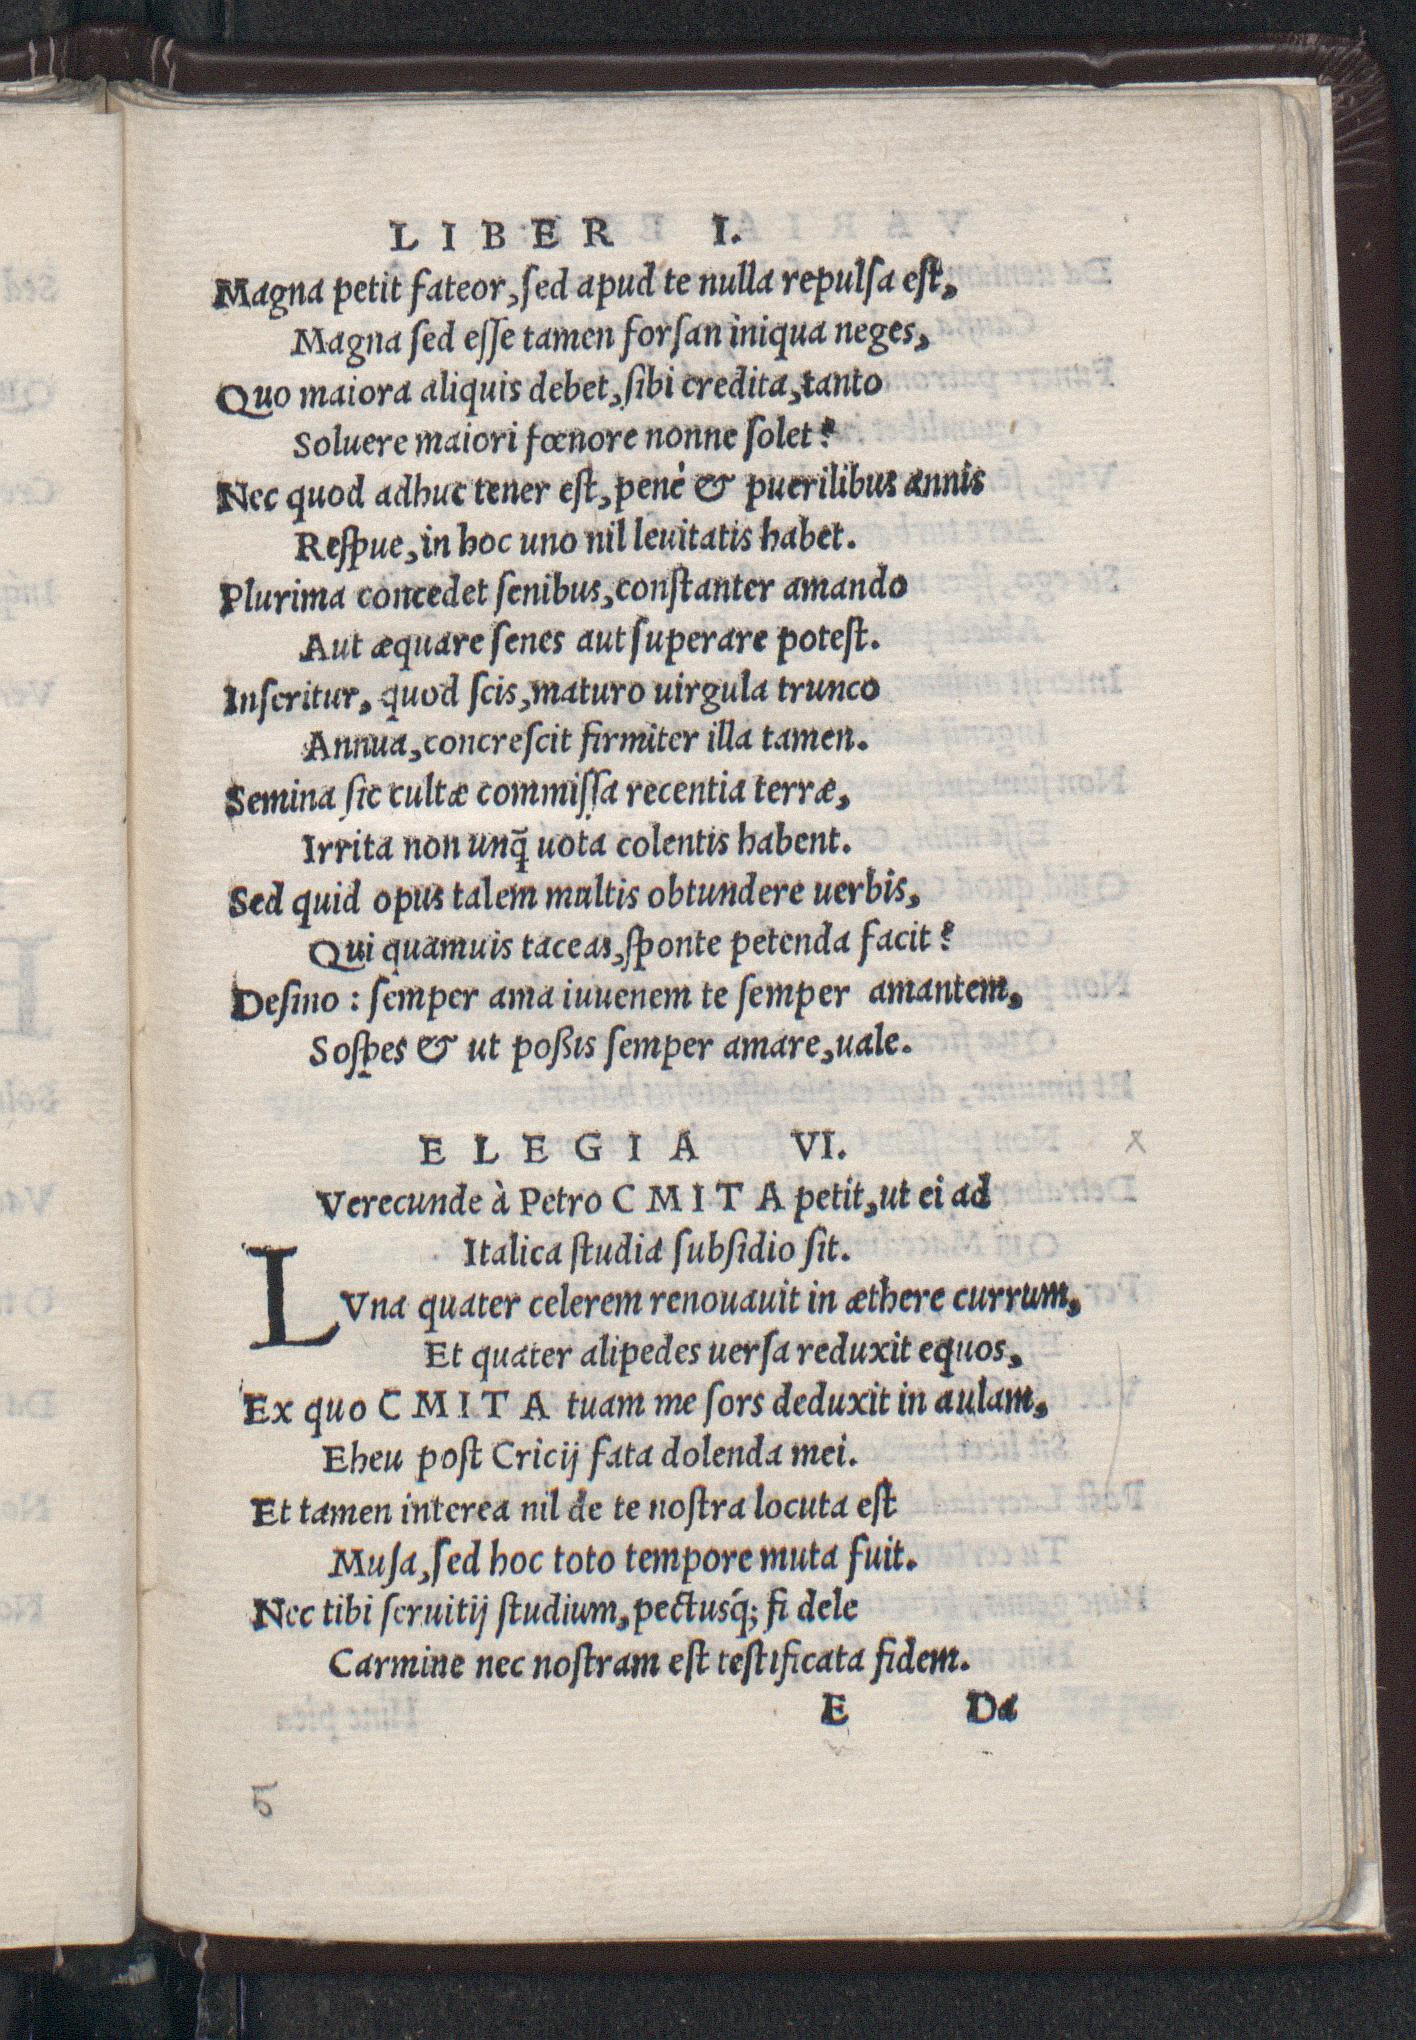 LIBER I.
Magna petit fateor, ſed apud te nulla repulſa eſt,
Magna ſed eſſe tamen forſan iniqua neges,
Quo maiora aliquis debet, ſibi credita, tanto
Soluere maiori fœnore nonne ſolet?
Nec quod adhuc tener eſt, penè & puerilibus annis
Reſpue, in hoc uno nil leuitatis habet.
Plurima concedet ſenibus, conſtanter amando
Aut æquare ſenes aut ſuperare poteſt.
Inſeritur, quod ſcis, maturo uirgula trunco
Annua, concreſcit firmiter illa tamen.
Semina ſic cultæ commiſſa recentia terræ,
Irrita non unq̃ uota colentis habent.
Sed quid opus talem multis obtundere uerbis,
Qui quamuis taceas, ſponte petenda facit?
Deſino : ſemper ama iuuenem te ſemper amantem,
Soſpes & ut poßis ſemper amare, uale.
ELEGIA VI.
Verecunde à Petro CMITA petit, ut ei ad
Italica ſtudia ſubſidio ſit.
LVna quater celerem renouauit in æthere currum,
Et quater alipedes uerſa reduxit equos,
Ex quo CMITA tuam me ſors deduxit in aulam,
Eheu poſt Cricij fata dolenda mei.
Et tamen interea nil de te noſtra locuta eſt
Muſa, ſed hoc toto tempore muta fuit.
Nec tibi ſeruitij ſtudium, pectusq́; fi dele
Carmine nec noſtram eſt teſtificata fidem.
E Da
5